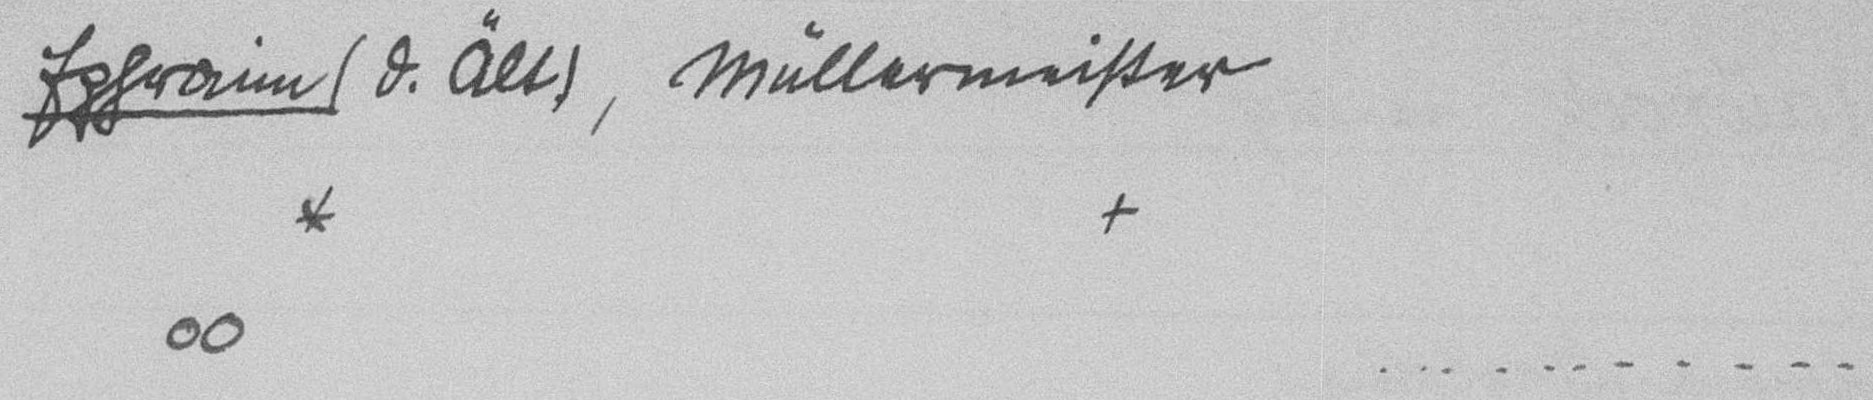 Ephraim (d. Ält.), Müllermeister
* +
oo